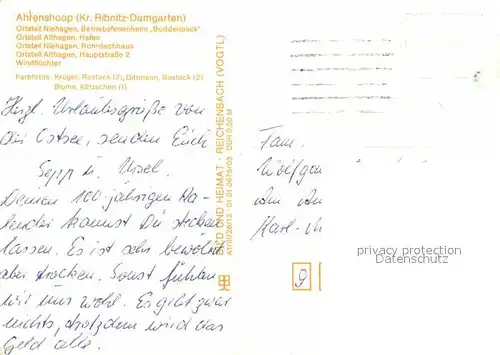 Ahrenshoop (Kr. Ribnitz-Damgarten)
Ortsteil Niehagen, Betriebsferienheim „Boddenblick"
Ortsteil Althagen, Hafen
Ortsteil Niehagen, Rohrdachhaus
Ortsteil Althagen, Hauptstraße 2
Windflüchter
Farbfotos: Krüger, Rostock (2), Dittmann, Rostock (2)
Blume, Kötzschen (1)
Herzl. Urlaubsgrüße von
der Ostsee, senden Euch
Sepp u. Ursel.
Deinen 100-jährigen Ka-
lender kannst Du stecken
lassen. Es ist sehr bewölkt
aber trocken. Sonst fühlen
wir uns wohl. Es gibt zwar
nichts, trotzdem wird das
Geld alle.
BILD UND HEIMAT · REICHENBACH (VOGTL)
A1/IV/26/13 · 01 01 0676/03 DDR 0,20 M
Fam.
Wolfgan
Karl-M
privacy protection
AnsichtskartenCenter
9